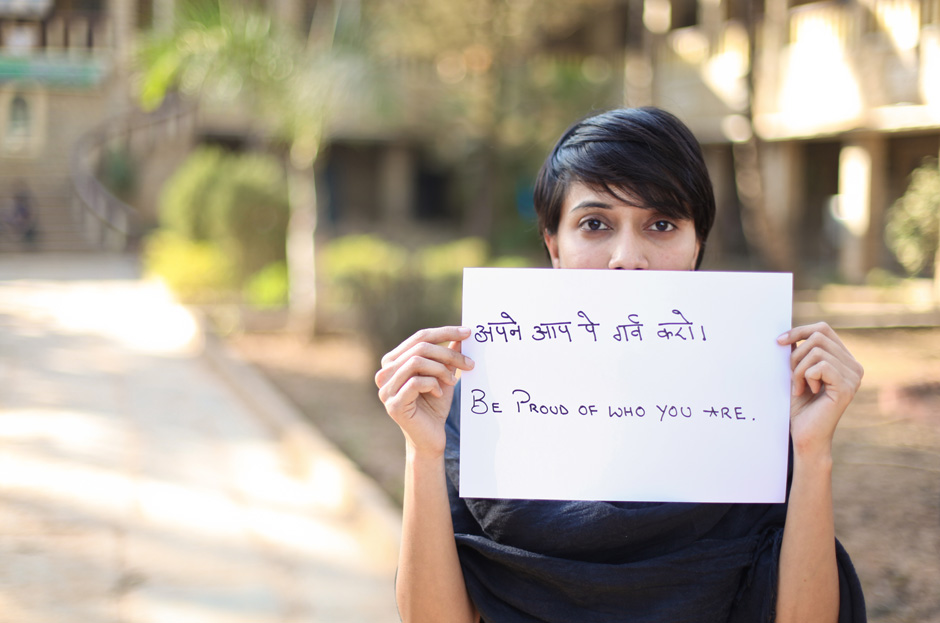 अपने आप पे गर्व करो।
BE PROUD OF WHO YOU ARE.